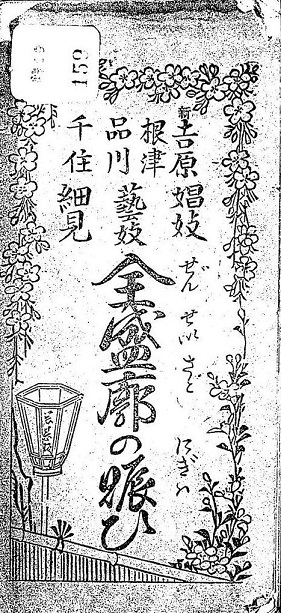 新吉原 娼妓
根津
品川 藝妓
千住 細見
全盛廓の賑ひ
ぜん せい さと にぎハ
159